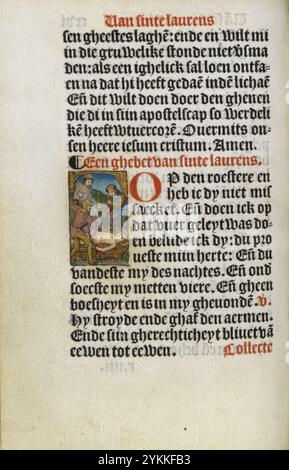 Van sinte laurens
sen gheestes laghē: ende en wilt mi
in die gruwelike stonde niet vsma
den: als een ighelick sal loen ontfa
en na dat hi heeft gedaē indē lichaē
Eñ dit wilt doen doer den ghenen
die di in sijn apostelscap so werdeli
kē heeft wtuercorē. Ouermits on-
sen heere iesum cristum. Amen.
Een ghebet van sinte laurens.
OP den roestere en
heb ic dy niet mis
saecket. Eñ doen ick op
dat vuer geleyt was do
en belide ick dy: du pro
ueste mijn herte: Eñ du
vandeste my des nachtes. Eñ ond
soecste my metten viere. Eñ gheen
boesheyt en is in my gheuondē. v.
Hy stroyde ende ghaf den aermen.
Ende sijn gherechticheyt blijuet vā
eewen tot eewen. Collecte
alamy
Image ID: 2YKKFB3
www.alamy.com